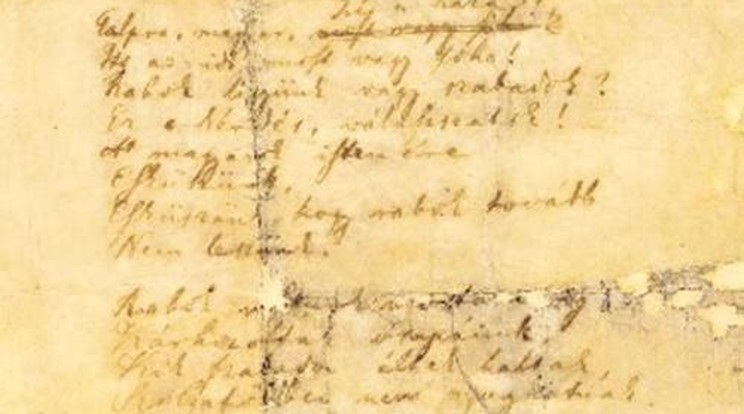 hí a haza!
Talpra magyar,
Itt az idő, most vagy soha!
Rabok legyünk vagy szabadok?
Ez a kérdés, válasszatok!
A magyarok istenére
Esküszünk,
Esküszünk, hogy rabok tovább
Nem leszünk.
Rabok voltunk mostanáig
Kárhozottak ősapáink,
Kik szabadon éltek haltak,
Szolgaföldben nem nyughatnak.